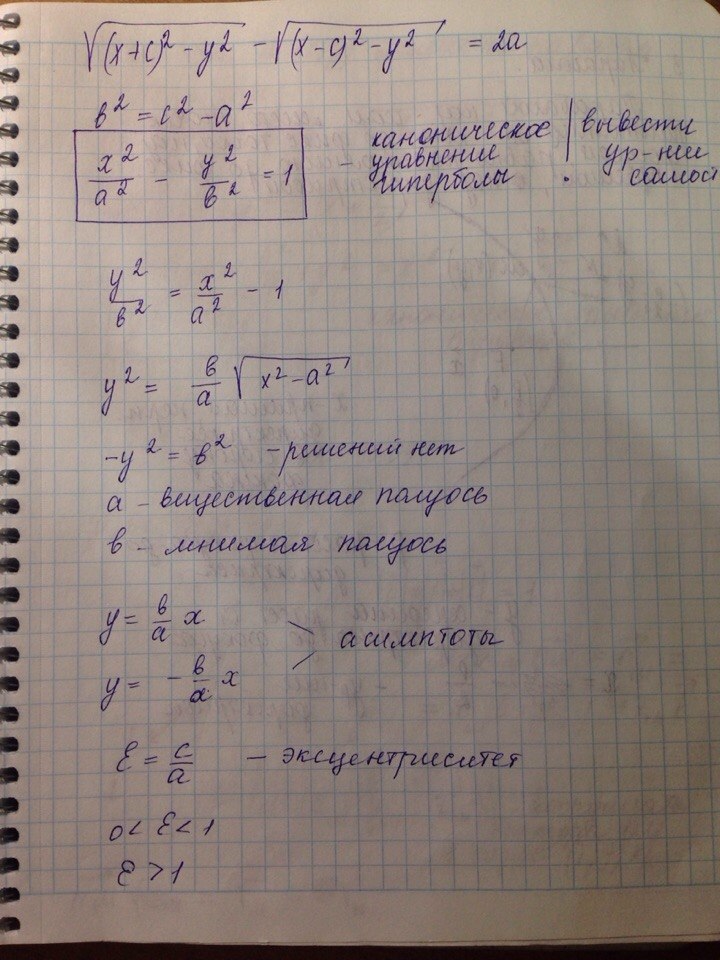 √((x+c)² - y²) - √((x-c)² - y²) = 2a
в² = c² - a²
x²/a² - y²/в² = 1 - каноническое уравнение гиперболы. | вывести ур-ние самост
y²/в² = x²/a² - 1
y² = в/a √(x² - a²)
-y² = в² - решений нет
а - вещественная полуось
в - мнимая полуось
y = в/a x
асимптоты
y = - в/a x
Ɛ = c/a - эксцентриситет
0 < Ɛ < 1
Ɛ > 1